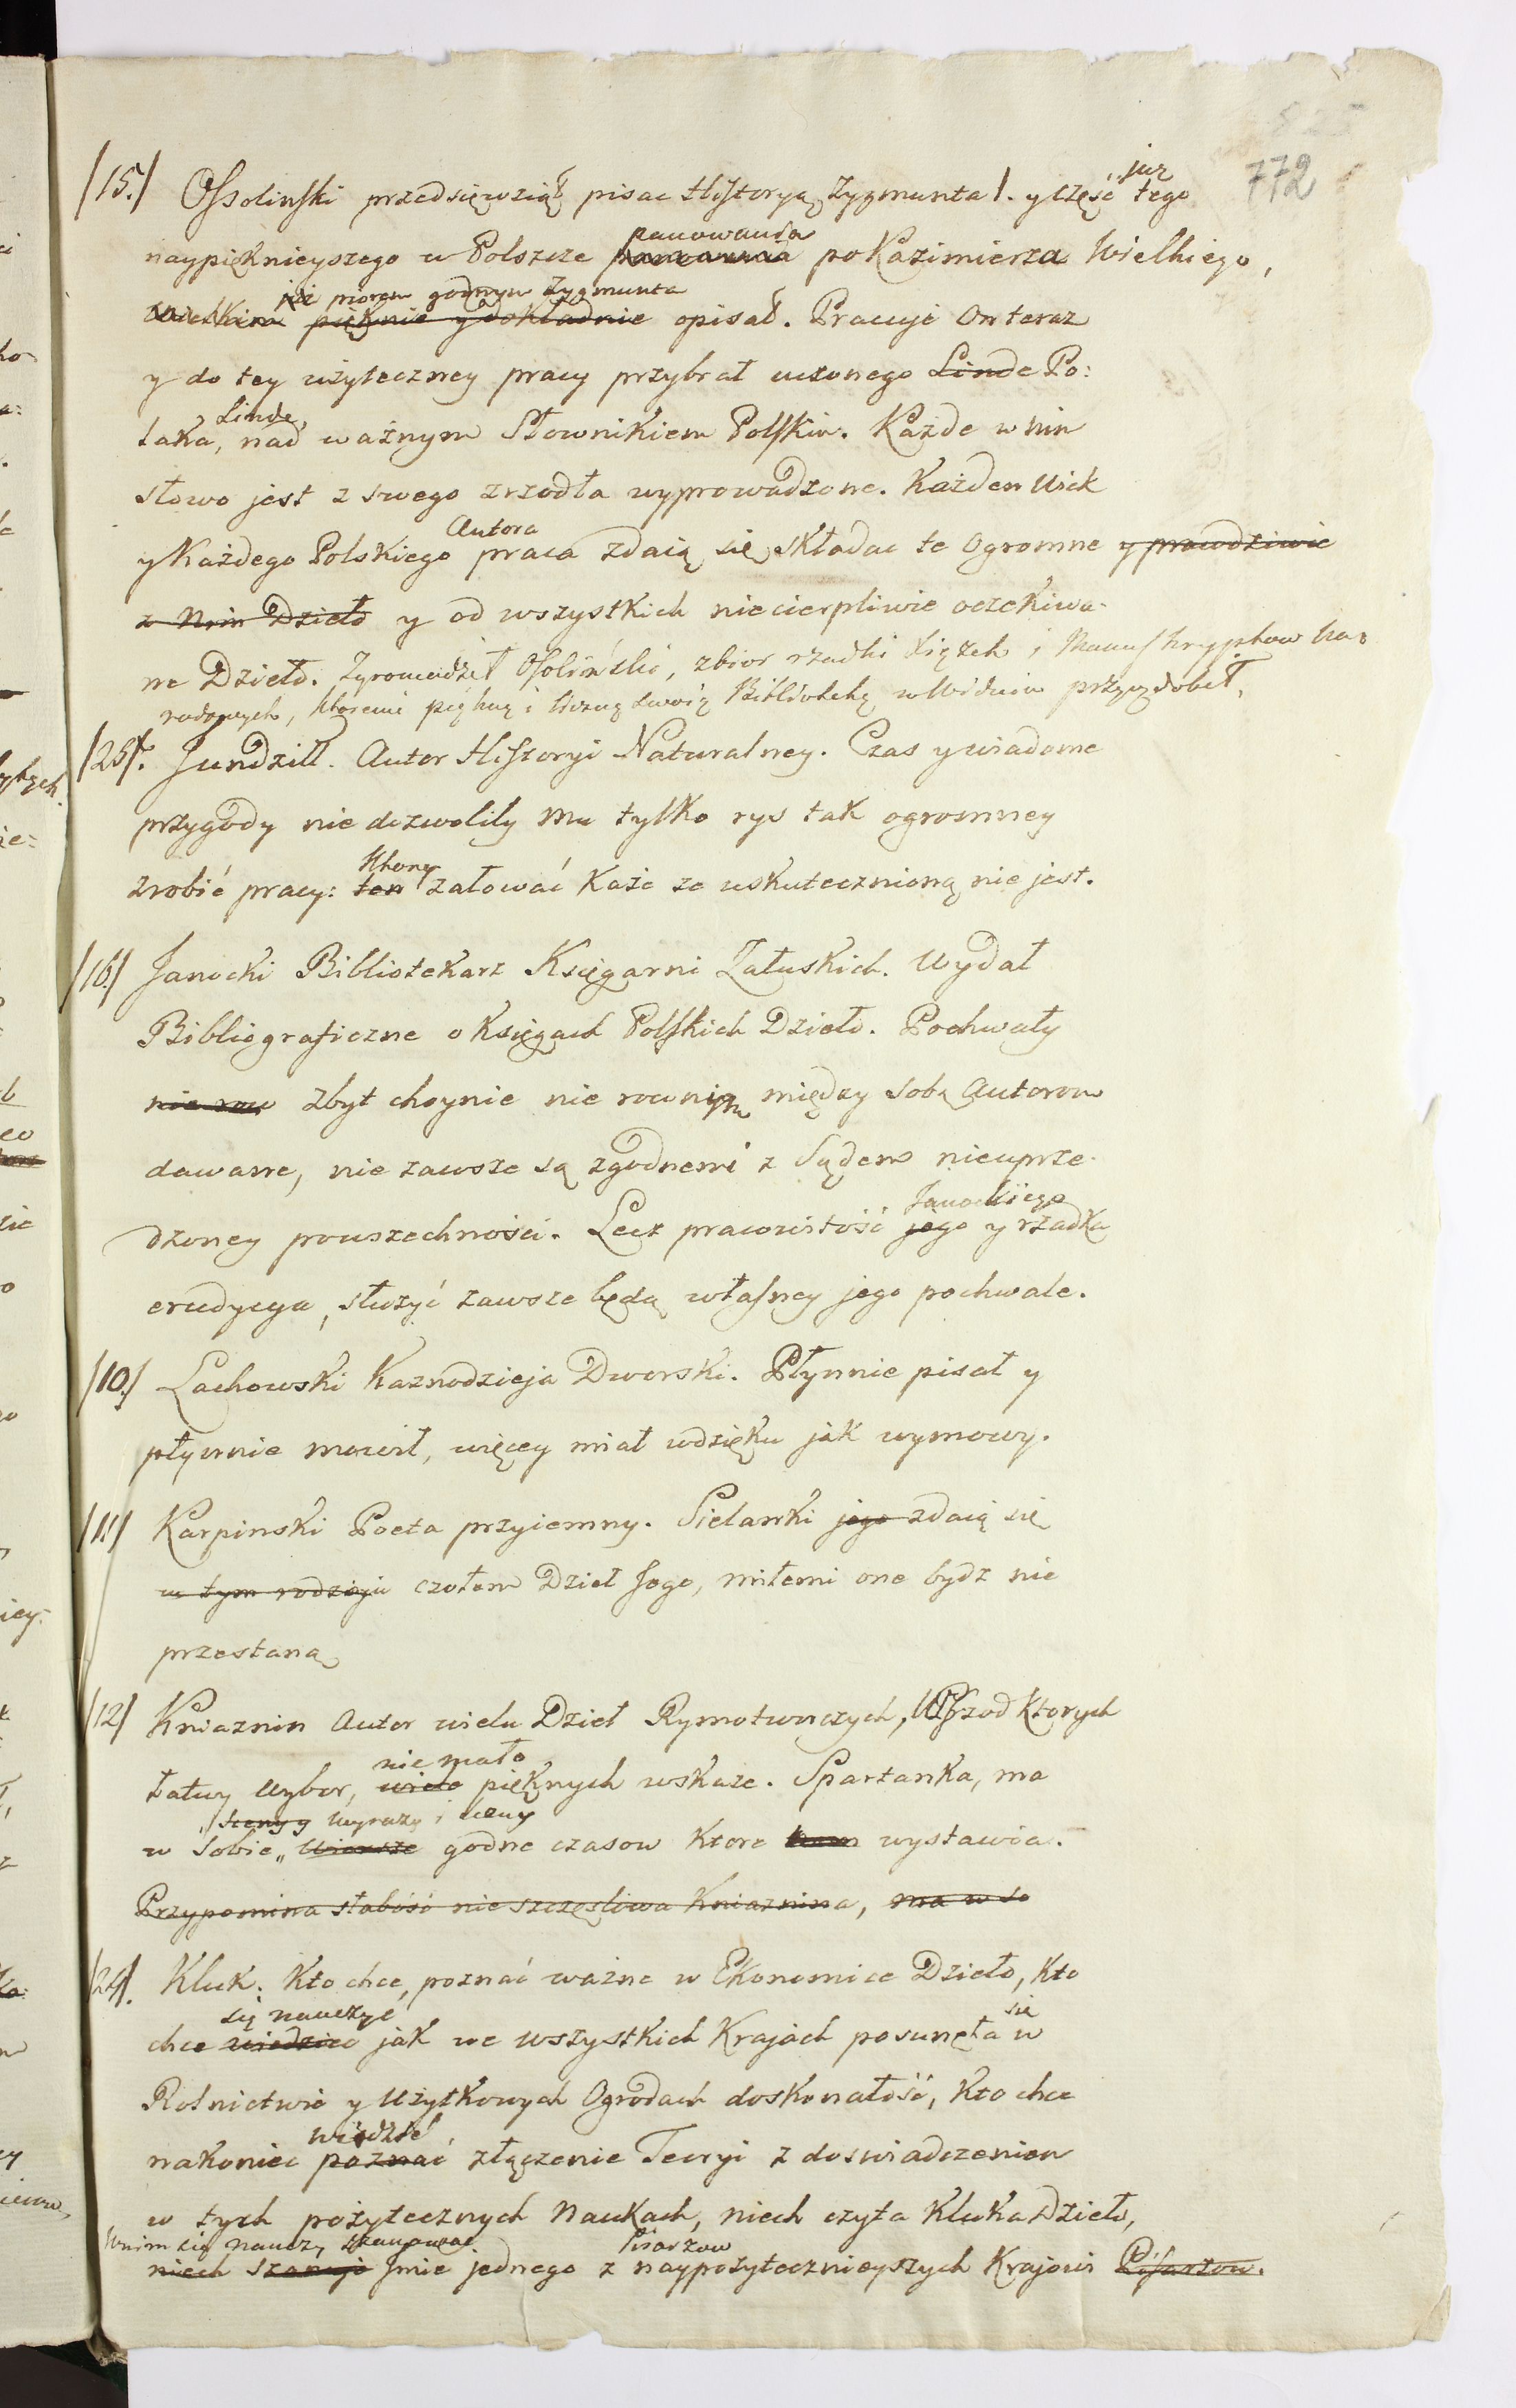 525
772
już
/15./ Ossolinski przedsięwziął pisac Historyą Zygmunta I. y część tego
panowania
naypięknieyszego w Polszcze panowania po Kazimierza Wielkiego,
już piorem godnym Zygmunta
pięknie y dokładnie opisał. Pracuje On teraz
y do tey użyteczney pracy przybrał uczonego Linde Po:
Linde,
laka, nad ważnym Słownikiem Polskim. Każde w nim
słowo jest z swego zrzodła wyprowadzone. Każden Wiek
Autora
y Każdego Polskiego praca zdaią się składac te Ogromne y prawdziwie
z Nim Dzieło y od wszystkich niecierpliwie oczekiwa-
ne Dzieło. Zgromadził Osoliński, zbior rzadki Xiążek i Manuskryptow Na-
rodowych, ktoremi piękną i liczną swoią Bibliotekę w Widniu przyozdobił.
/25/. Jundzill. Autor Historyi Naturalney. Czas y wiadome
przygody nie dozwolily mu tylko rys tak ogromney
Ktory
zrobić pracy: ten załować każe ze uskutecznioną nie jest.
/16./ Janocki Bibliotekarz Księgarni Załuskich. Wydał
Bibliograficzne o Księgach Polskich Dzieło. Pochwały
nie row zbyt choynie nie rownym między sobą Autorom
dawane, nie zawsze są zgodnemi z Sądem nieuprze-
Janockiego
dzoney powszechności. Lecz pracowitość jego y rzadka
erudycya, służyć zawsze będą własney jego pochwale.
/10./ Lachowski Kaznodzieja Dworski. Płynnie pisał y
płynnie mowił, więcey miał wdzięku jak wymowy.
/11/ Karpinski Poeta przyiemny. Sielanki jego zdaią się
w tym rodzaju czołem Dzieł Jego, miłemi one bydz nie
przestaną
/12/ Kniaznin Autor wielu Dzieł Rymotworczych, Wposrzod Ktorych
nie mało
Łatwy Wybor, wiele pięknych wskaze. Spartanka, ma
Sceny y Wyrazy i
w Sobie „ Wiersze godne czasow Ktore wystawia.
Przypomina słabość nieszczęsliwa Kniaznina, ma w so
/24/. Kluk. Kto chce, poznać ważne w Ekonomice Dzieło, Kto
się nauczyć się
chce wiedziec jak we wszystkich Krajach posunęła w
Rolnictwie y Użytkowych Ogrodach doskonałość, Kto chce
widzieć,
nakoniec poznać złączenie Teoryi z doswiadczeniem
w tych pożytecznych Naukach, niech czyta Kluka Dzieło,
W nim się nauczy szanować Pisarzow
niech szanuje Imie jednego z naypożytecznieyszych Krajowi Pisarzow.